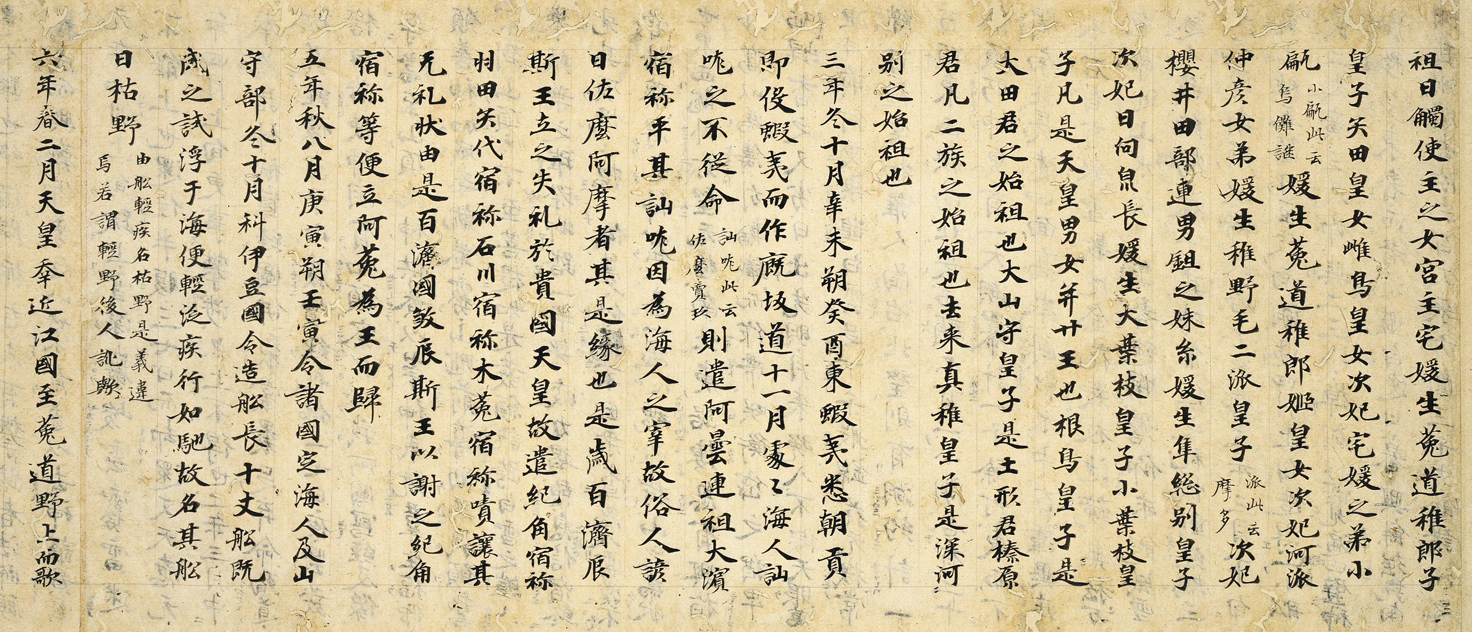 祖日觸使主之女宮主宅媛生菟道稚郎子
皇子矢田皇女雌鳥皇女次妃宅媛之弟小
甂小甂此云烏儺謎媛生菟道稚郎姬皇女次妃河派
仲彥女弟媛生稚野毛二派皇子派此云摩多次妃
櫻井田部連男鉏之妹糸媛生隼総別皇子
次妃日向泉長媛生大葉枝皇子小葉枝皇
子凡是天皇男女并廿王也根鳥皇子是
大田君之始祖也大山守皇子是土形君榛原
君凡二族之始祖也去来真稚皇子是深河
別之始祖也
三年冬十月辛未朔癸酉東蝦夷悉朝貢
即伇蝦夷而作厩坂道十一月處〻海人訕
哤之不從命訕哤此云佐麼賣玖則遣阿曇連祖大濵
宿祢平其訕哤因為海人之宰故俗人諺
曰佐麼阿摩者其是縁也是歳百濟辰
斯王立之失礼於貴國天皇故遣紀角宿祢
羽田矢代宿祢石川宿祢木菟宿祢嘖讓其
无礼状由是百濟國敦辰斯王以謝之紀角
宿祢等便立阿菟為王而歸
五年秋八月庚寅朔壬寅令諸國定海人及山
守部冬十月科伊豆國令造舩長十丈舩既
成之試浮于海便輕泛疾行如馳故名其舩
曰枯野由舩輕疾名枯野是義違焉若謂輕野後人訛歟
六年春二月天皇幸近江國至菟道野上而歌